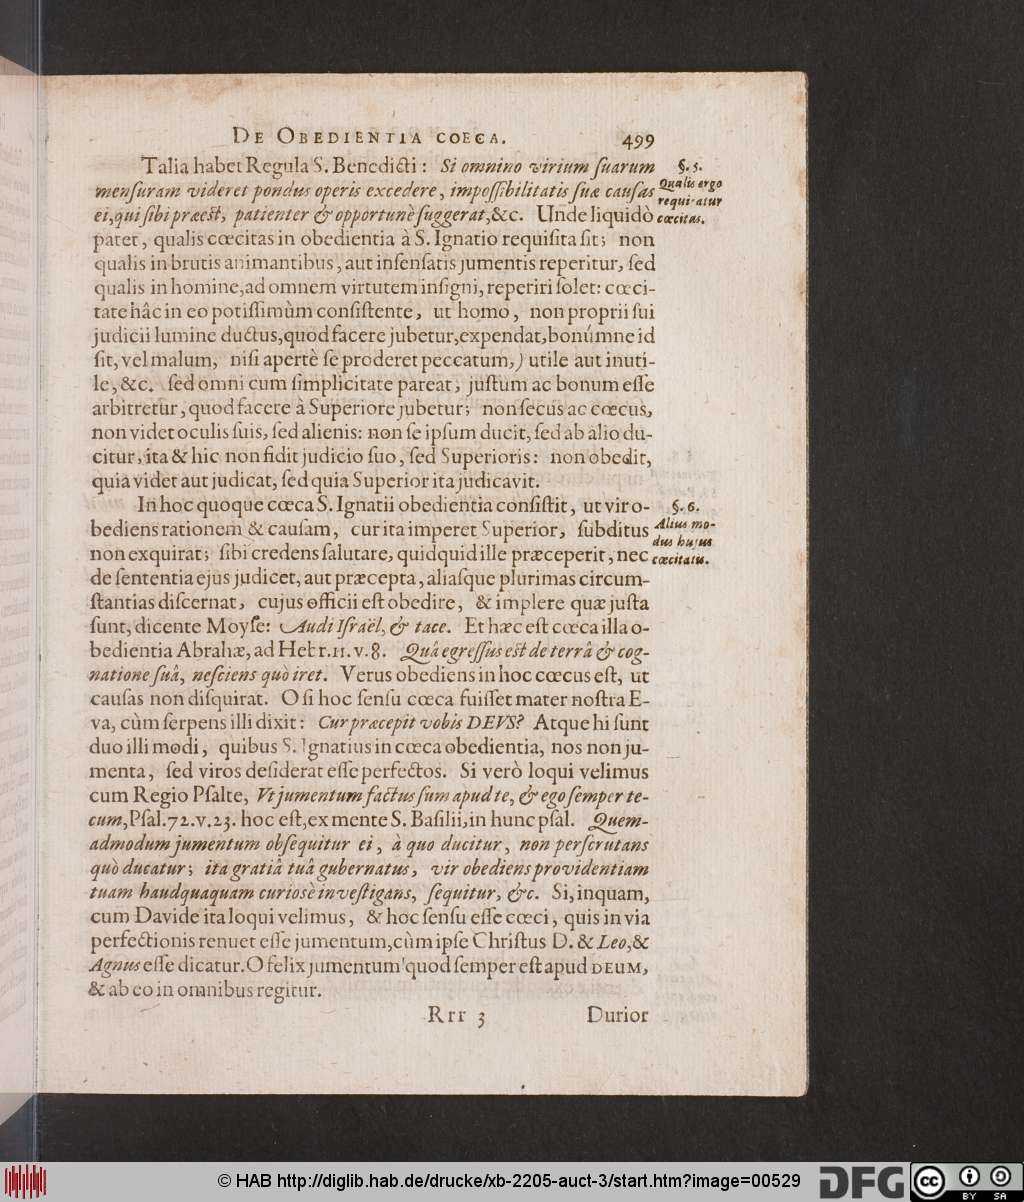 DE OBEDIENTIA COECA. 499
Talia habet Regula S. Benedicti: Si omnino virium ſuarum
menſuram videret pondus operis excedere, impoſſibilitatis ſuæ cauſas
ei, qui ſibi præest, patienter & opportunè ſuggerat, &c. Unde liquidò
patet, qualis cœcitas in obedientia à S. Ignatio requiſita ſit; non
qualis in brutis animantibus, aut inſenſatis jumentis reperitur, ſed
qualis in homine, ad omnem virtutem inſigni, reperiri ſolet: cœci-
tate hâc in eo potiſſimùm conſiſtente, ut homo, non proprii ſui
judicii lumine ductus, quod facere jubetur, expendat, bonúmne id
ſit, vel malum, niſi apertè ſe proderet peccatum,) utile aut inuti-
le, &c. ſed omni cum ſimplicitate pareat, juſtum ac bonum eſſe
arbitretur, quod facere à Superiore jubetur; non ſecus ac cœcus,
non videt oculis ſuis, ſed alienis: non ſe ipſum ducit, ſed ab alio du-
citur, ita & hic non fidit judicio ſuo, ſed Superioris: non obedit,
quia videt aut judicat, ſed quia Superior ita judicavit.
§. 5.
Qualis ergo
requiratur
cœcitas.
In hoc quoque cœca S. Ignatii obedientia conſiſtit, ut vir o-
bediens rationem & cauſam, cur ita imperet Superior, ſubditus
non exquirat; ſibi credens ſalutare, quidquid ille præceperit, nec
de ſententia ejus judicet, aut præcepta, aliaſque plurimas circum-
ſtantias diſcernat, cujus officii eſt obedire, & implere quæ juſta
ſunt, dicente Moyſe: Audi Iſraël, & tace. Et hæc eſt cœca illa o-
bedientia Abrahæ, ad Hebr. 11. v. 8. Quâ egreſſus est de terrâ & cog-
natione ſuâ, neſciens quò iret. Verus obediens in hoc cœcus eſt, ut
cauſas non diſquirat. O ſi hoc ſenſu cœca fuiſſet mater noſtra E-
va, cùm ſerpens illi dixit: Cur præcepit vobis DEVS? Atque hi ſunt
duo illi modi, quibus S. Ignatius in cœca obedientia, nos non ju-
menta, ſed viros deſiderat eſſe perfectos. Si verò loqui velimus
cum Regio Pſalte, Vt jumentum factus ſum apud te, & ego ſemper te-
cum, Pſal. 72. v. 23. hoc eſt, ex mente S. Baſilii, in hunc pſal. Quem-
admodum jumentum obſequitur ei, à quo ducitur, non perſcrutans
quò ducatur; ita gratiâ tuâ gubernatus, vir obediens providentiam
tuam haudquaquam curioſè inveſtigans, ſequitur, &c. Si, inquam,
cum Davide ita loqui velimus, & hoc ſenſu eſſe cœci, quis in via
perfectionis renuet eſſe jumentum, cùm ipſe Chriſtus D. & Leo, &
Agnus eſſe dicatur. O felix jumentum! quod ſemper eſt apud DEUM,
& ab eo in omnibus regitur.
§. 6.
Alius mo-
dus hujus
cœcitatis.
Rrr 3 Durior
© HAB http://diglib.hab.de/drucke/xb-2205-auct-3/start.htm?image=00529
DFG
cc BY SA